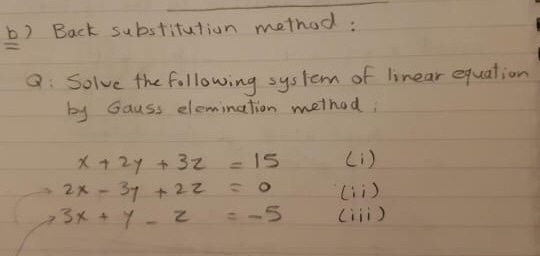 b) Back substitution method :
Q: Solve the following system of linear equation
by Gauss elemination method :
x + 2y + 3z = 15 (i)
2x - 3y + 2z = 0 (ii)
3x + y - z = -5 (iii)